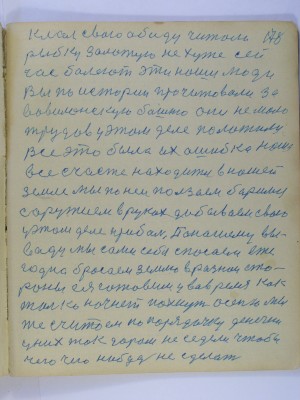 клал свого обиду читали 178
рыбку золотую не хуже сей
час болеют эти наши мозги
Вы по истории прочитовали за
вавилонскую башню они не мало
трудов у этом деле положили
Все это была их ошибка наше
все счасте находится в нашей
земле мы по ней ползаем боримся
с оружием в руках добиваем свого
у этом деле прибал, Понашему вы
ваду мы сами себя спасаем еже
годно бросаем землю в разные сто
роны ея готовим у вовремя как
только начнет пахнуть осень мы
же считаем по порядочку денечки
у них так даром не сидели чтобы
чего чего нибудь не сделать